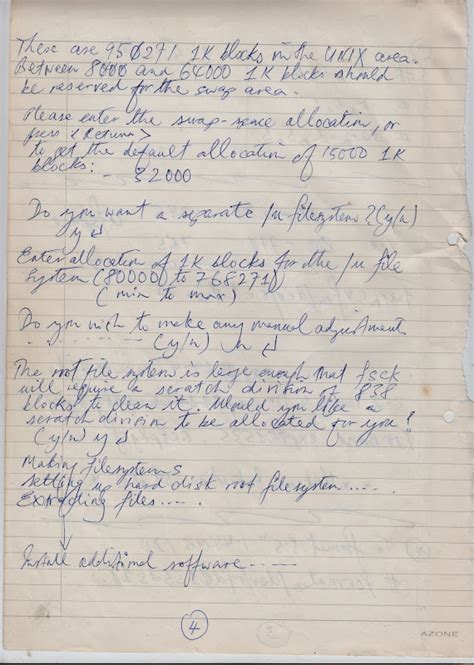 There are 950271 1K blocks in the UNIX area.
Between 8000 and 64000 1K blocks should
be reserved for the swap area.
Please enter the swap-space allocation, or
press <Return>
to get the default allocation of 15000 1K
blocks: - 32000
Do you want a separate /u filesystem? (y/n)
y ↵
Enter allocation of 1K blocks for the /u file
system (800000 to 768271)
(min to max)
Do you wish to make any manual adjustment
.......... (y/n) n ↵
The root file system is large enough that fsck
will require a scratch division of 838
blocks to clean it. Would you like a
scratch division to be allocated for you?
(y/n) y ↵
Making filesystems
setting up hard disk root filesystem .....
Extracting files.....
Install additional software.....
4
AZONE